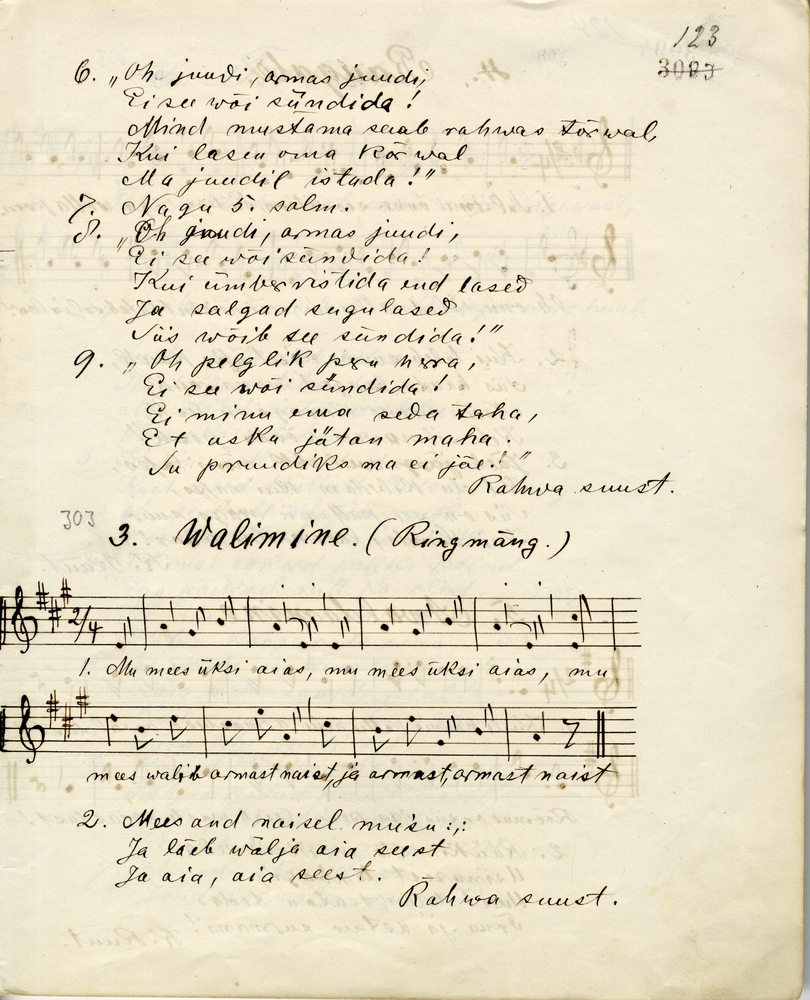 123
3083
6. „Oh juudi, armas juudi,
Ei see wõi sündida!
Mind mustama saab rahwas tõrwal,
Kui lasen oma kõrwal
Ma juudil istuda!”
7. Nagu 5. salm.
8. „Oh juudi, armas juudi,
Ei see wõi sündida!
Kui ümberristida end lased
Ja salgad sugulased
Siis wõib see sündida!”
9. „Oh pelglik peru herra,
Ei see wõi sündida!
Ei minu ema seda taha,
Et usku jätan maha.
Su pruudiks ma ei jäe!”
Rahwa suust.
303
3. Walimine. (Ringmäng.)
2/4
1. Mu mees üksi aias, mu mees üksi aias, mu
mees walib armast naist, ja armast, armast naist
2. Mees and naisel muisu :,:
Ja läeb wälja aia seest
Ja aia, aia seest.
Rahwa suust.